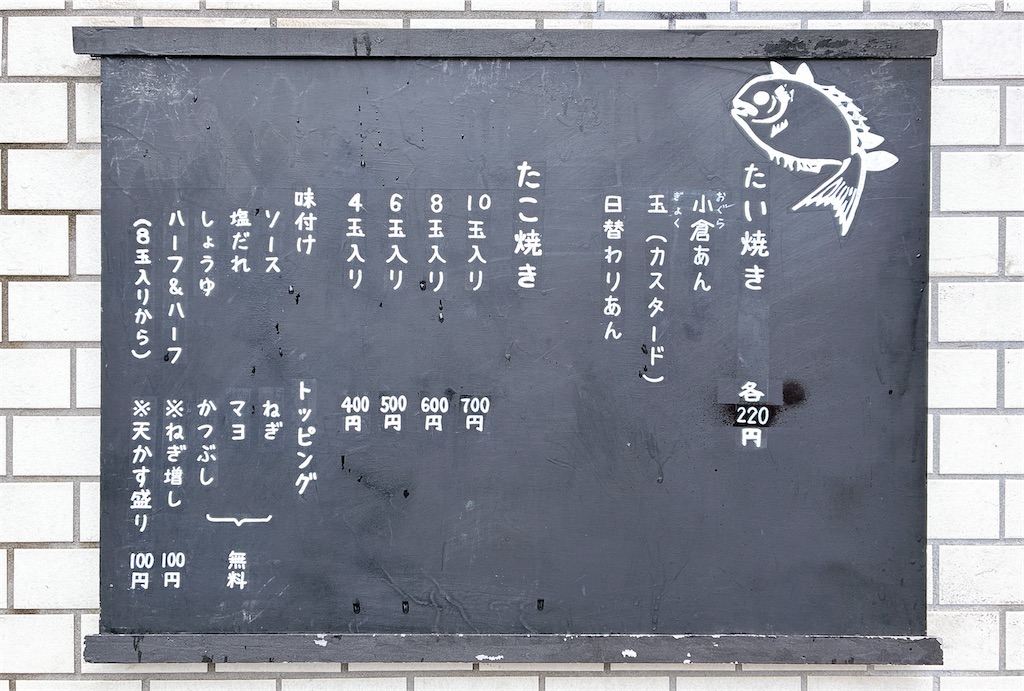 たい焼き 各220円
小倉あん
おぐら
玉(カスタード)
ぎょく
日替わりあん
たこ焼き
10玉入り 700円
8玉入り 600円
6玉入り 500円
4玉入り 400円
味付け
ソース
塩だれ
しょうゆ
ハーフ&ハーフ
(8玉入りから)
トッピング
ねぎ
マヨ
かつぶし
無料
※ねぎ増し 100円
※天かす盛り 100円